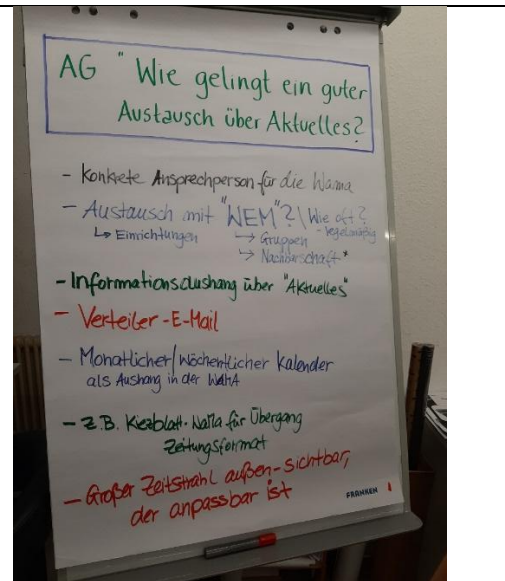 AG "Wie gelingt ein guter
Austausch über Aktuelles?
- Konkrete Ansprechperson für die Wama
- Austausch mit "WEM"? | Wie oft?
- regelmäßig
↳ Einrichtungen
→ Gruppen
→ Nachbarschaft*
- Informationsaushang über "Aktuelles"
- Verteiler-E-Mail
- Monatlicher/Wöchentlicher Kalender
als Aushang in der WaMA
- z.B. Kiezblatt-WaMa für Übergang
Zeitungsformat
- Großer Zeitstrahl außen-sichtbar,
der anpassbar ist
FRANKEN